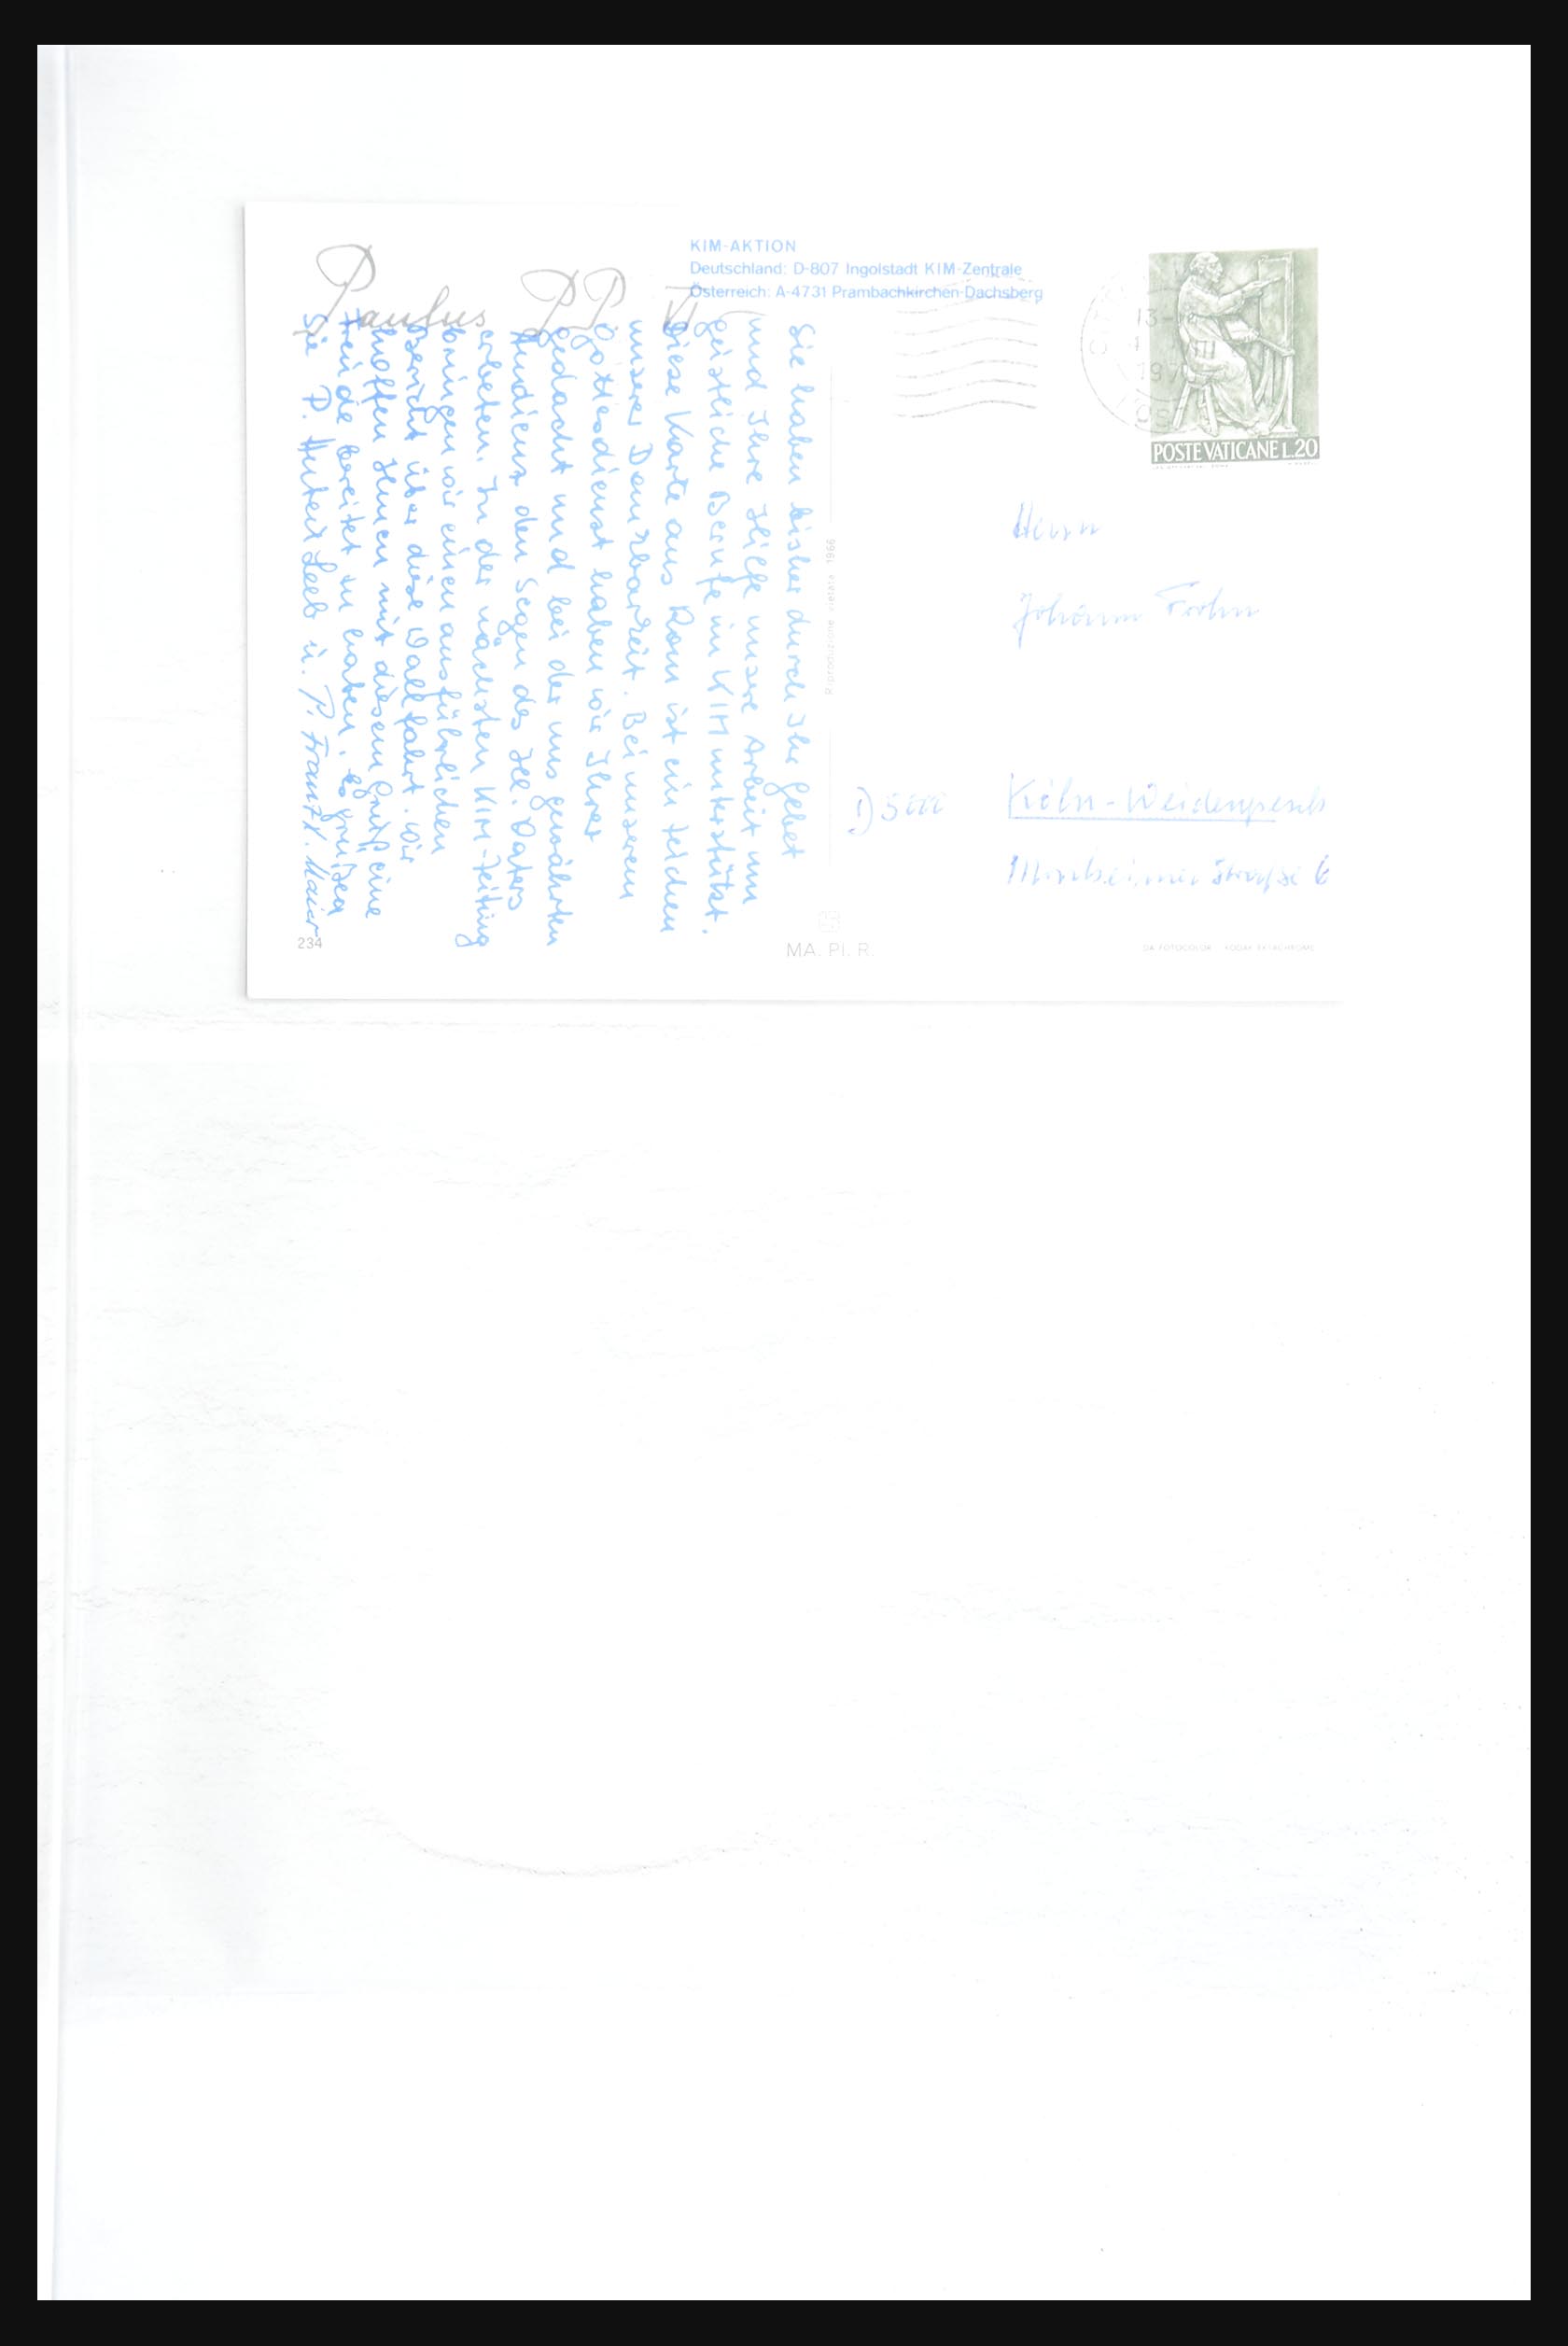 Paulus PP VI
KIM-AKTION
Deutschland: D-807 Ingolstadt KIM-Zentrale
Österreich: A-4731 Prambachkirchen-Dachsberg
Sie haben bisher durch Ihr Gebet
und Ihre Hilfe unsere Arbeit um
geistliche Berufe im KIM unterstützt.
Diese Karte aus Rom ist ein Zeichen
unserer Dankbarkeit. Bei unserem
Gottesdienst haben wir Ihrer
gedacht und bei der uns gewährten
Audienz den Segen des Hl. Vaters
erbeten. In der nächsten KIM-Zeitung
bringen wir einen ausführlichen
Bericht über diese Wallfahrt. Wir
hoffen Ihnen mit diesem Gruß eine
Freude bereitet zu haben. Es grüßen
Sie P. Hubert Leeb u. P. Franz X. Maier
234
Riproduzione vietata 1966
MA. PI. R.
13-
197
POSTE VATICANE L.20
Herrn
Johann
D 5000 Köln-Weidenpesch
Straße 6
DA FOTOCOLOR KODAK EKTACHROME